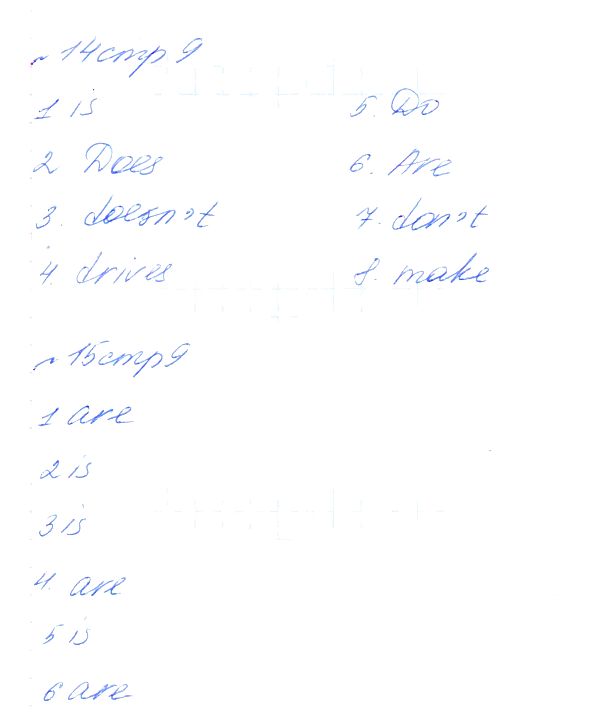 ~ 14 стр 9
1 is
2 Does
3. doesn't
4. drives
5. Do
6. Are
7. don't
8. make
~ 15 стр 9
1 are
2 is
3 is
4. are
5 is
6 are